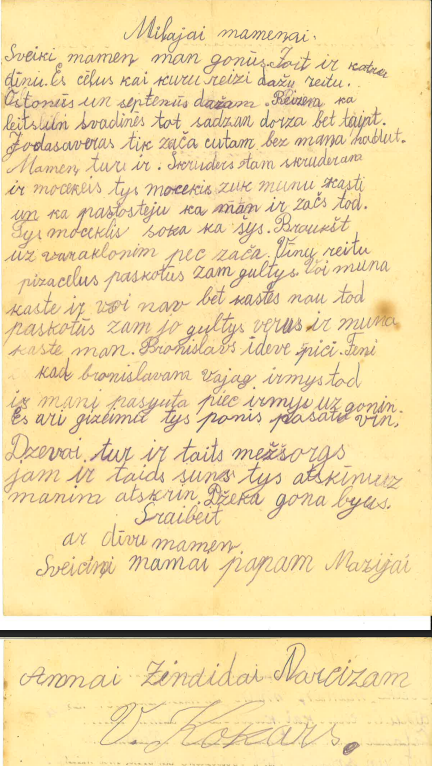 Milajai mamenai.
Sveiki mamen man gonūs Tait ir katru
dīnu. Es cēlus kai kuru reizi dažu reitu.
Ostoniis un septeniis dažam. Reizem ka
leitsun svadinēs tot sadzan dorza bet taipt.
Jodasaveras tik zača cutam bez mana
Mamen tur ir. Skruders tam skruderam
ir moceklis tys moceklis zuk munu kasti
un ka pastosteju ka mān ir začs tod.
Tys moceklis soka ka šys. Braukšt
uz varaklonim pec zača. Vinu reitu
pizacelus paskotūs zam gultys. Voi muna
kaste ir voi nav bet kastes nau tod
paskotūs zam jo gultys verus ir muna
kaste man. Bronislavs ideve pici. Feni
kad bronislavam vajag irmys tod
is mani pasyuta piec irmiu uz gonim.
Es ari gizeimu tys ponis pasate vin.
Dzevai tur ir taits mežsorgs
jam ir taids suns tys atskīnuz
manim atskrin. Džeka gona byus.
Sraibeit
ar dīvu mamen.
Sveicini mamai papam Marijai
Annai Zindidai Narcizam
V. Kokars.